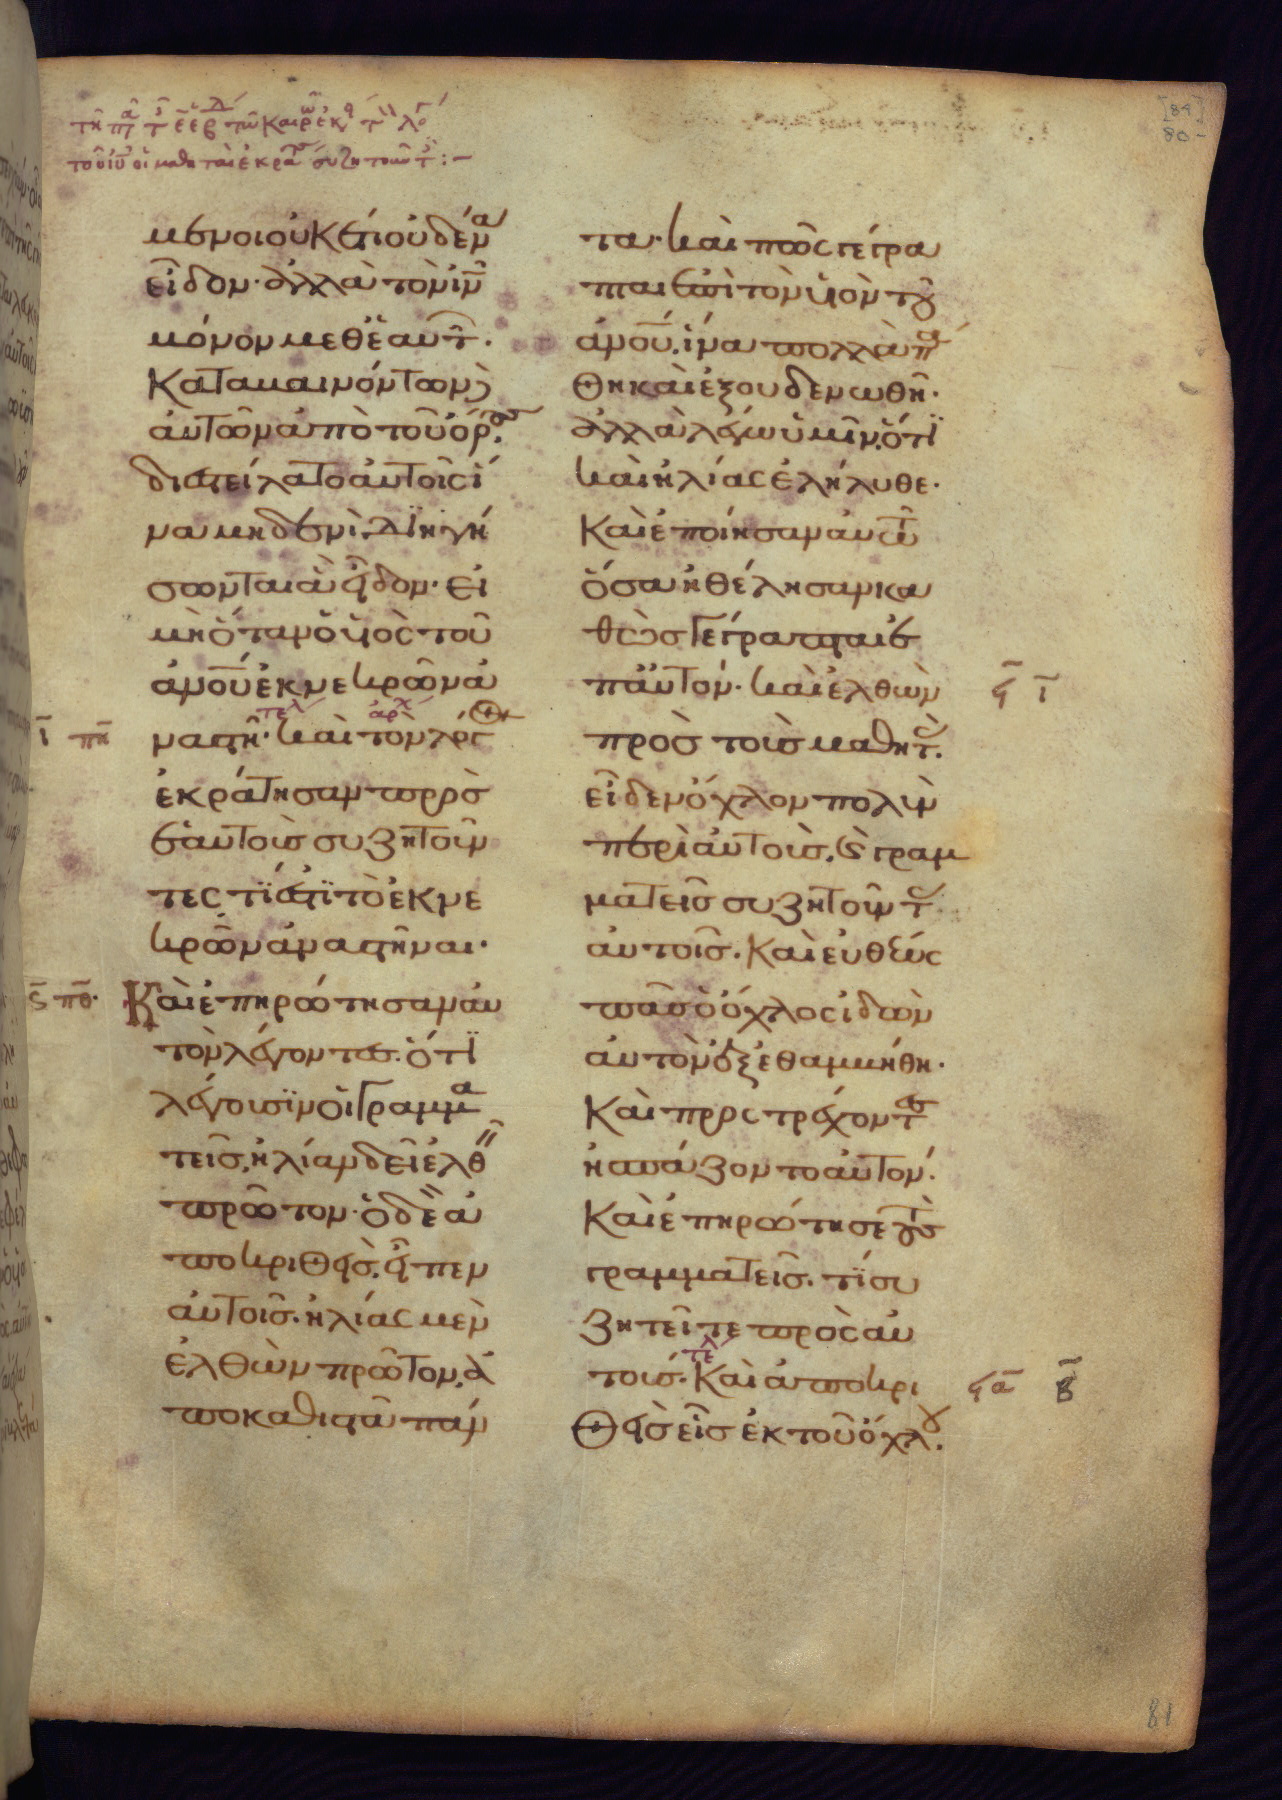 μενοι οὐκέτι οὐδένα
εἶδον· ἀλλὰ τὸν ἰν
μόνον μεθ ἑαυτ.
Καταβαινόντων
αὐτῶν ἀπὸ τοῦ ὄρ.
διεστείλατο αὐτοῖς ἵ
να μηδενὶ διηγή
σωνται ἃ εἶδον· εἰ
μὴ ὅταν ὁ υἱὸς τοῦ
ἀνου ἐκ νεκρῶν ἀ
ναστῆ· καὶ τὸν λόγ
ἐκράτησαν πρὸς
ἑαυτοὺς συζητοῦν
τες τί ἐστι τὸ ἐκ νε
κρῶν ἀναστῆναι·
Καὶ ἐπηρώτησαν αὐ
τὸν λέγοντες. ὅτι
λέγουσιν οἱ γραμμα
τεῖς, ἠλίαν δεῖ ἐλθ
πρῶτον· ὁ δὲ ἀ
ποκριθεὶς, εἶπεν
αὐτοῖς. ἠλίας μὲν
ἐλθὼν πρῶτον, ἀ
ποκαθιστᾶ πάν
τα· καὶ πῶς γέγρα
πται ἐπὶ τὸν υἱὸν τοῦ
ἀνου, ἵνα πολλὰ πα
θη καὶ ἐξουδενωθῆ·
ἀλλὰ λέγω ὑμῖν, ὅτι
καὶ ἠλίας ἐλήλυθε·
Καὶ ἐποίησαν αὐτῶ
ὅσα ἠθέλησαν κα
θὼς γέγραπται ἐ
π αὐτόν· καὶ ἐλθὼν
πρὸς τοὺς μαθητ.
εἶδεν ὄχλον πολὺν
περὶ αὐτοὺς, καὶ γραμ
ματεῖς συζητοῦντ
αὐτοῖς. Καὶ εὐθέως
πᾶς ὁ ὄχλος ἰδὼν
αὐτὸν ἐξεθαμβήθη·
Καὶ προστρέχοντες
ἠσπάζοντο αὐτόν.
Καὶ ἐπηρώτησε τοὺς
γραμματεῖς. τί συ
ζητεῖτε πρὸς αὐ
τούς. Καὶ ἀποκρι
θεὶς εἷς ἐκ τοῦ ὄχλου.
81